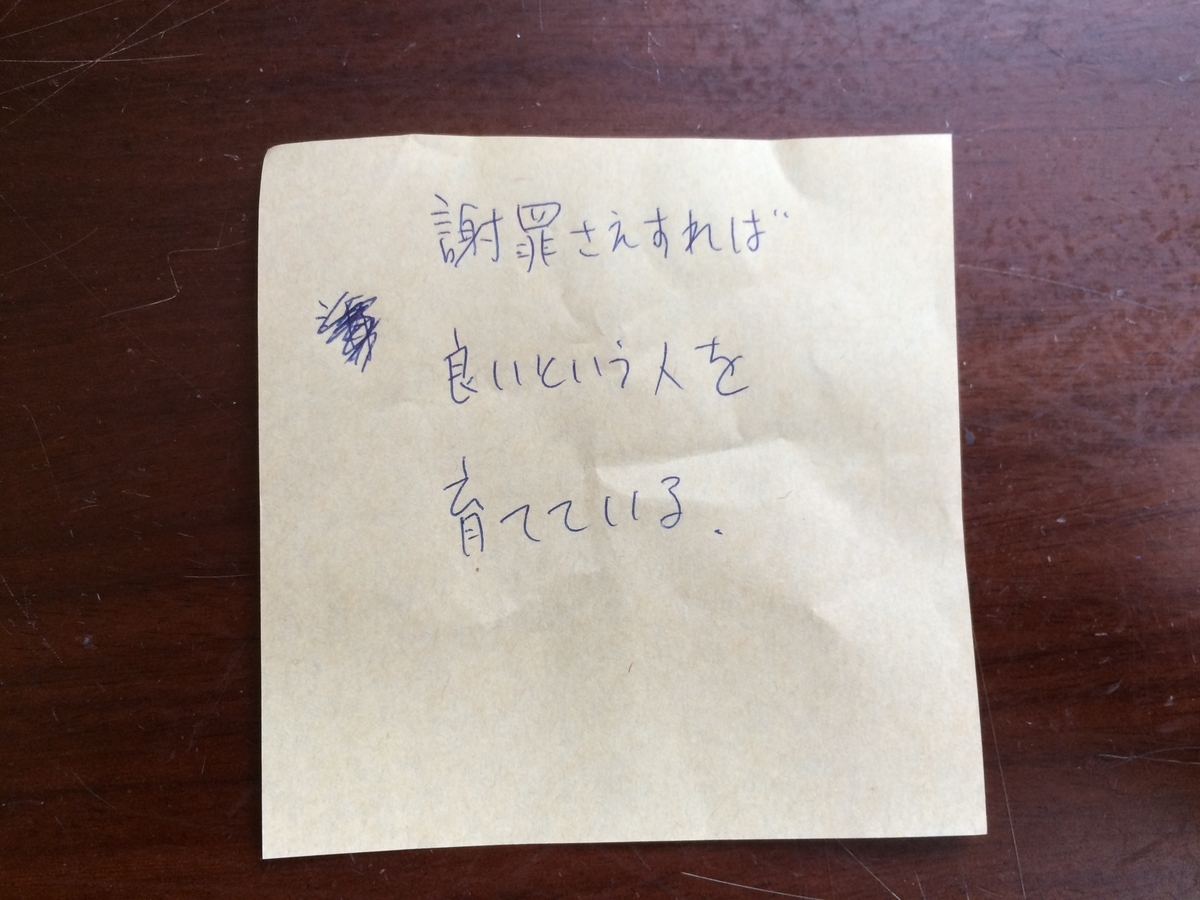 謝罪さえすれば
良いという人を
育てている.